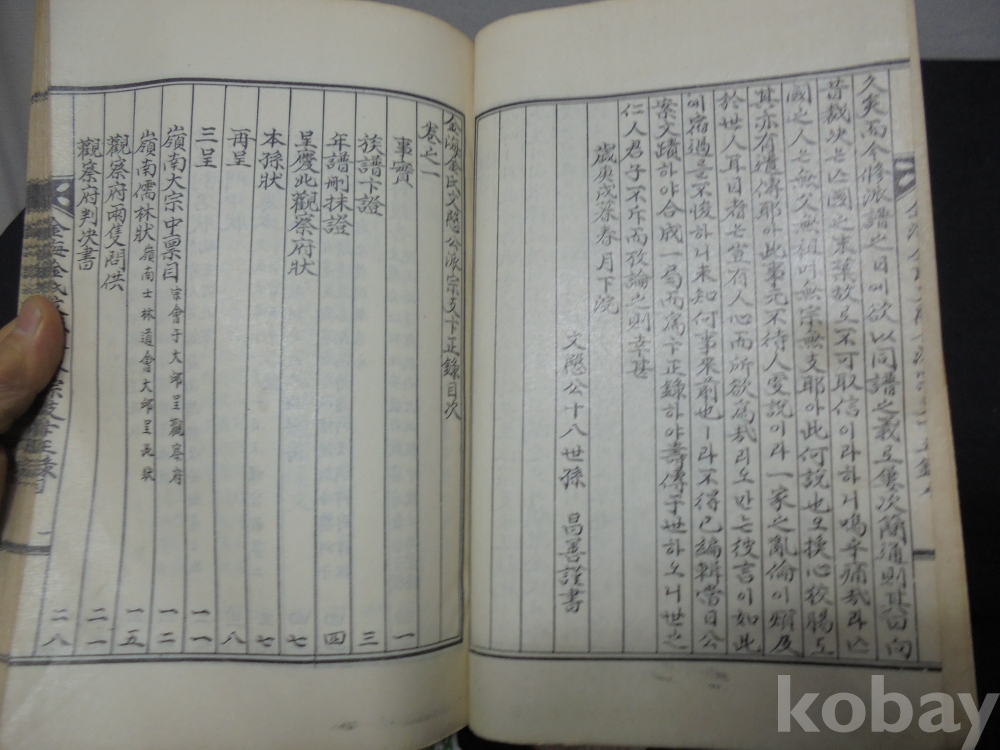 久矣而今修派譜之日에欲以同譜之義로屢次簡通則其回向
昔裁决은國之末葉故로不可取信이라하니嗚乎痛哉라
國之人은無父無祖며無宗無支耶아此何說也오換心救腸도
其亦有遺傳耶아此事元不待人雯說이라一家之亂倫이頗及
於世人耳目者은豈有人心而所欲爲哉리오만는彼言이如此
에宿過을不悛하니未知何事来前也ㅣ라不得已編輯當日公
案文蹟하야合成一局而爲卞正錄하야壽傳于世하오니世之
仁人君子不斥而攷論之則幸甚
歲庚戌暮春月下浣
文愍公十八世孫 昌善謹書
金海金氏文愍公派宗支卞正錄目次
卷之一
事實 一
族譜卞證 三
年譜刪抹證 四
呈慶北觀察府狀 七
本孫狀 七
再呈 八
三呈 一一
嶺南大宗中稟目 宗會于大邱呈觀察府 一二
嶺南儒林狀 嶺南士林道會大邱呈長狀 一五
觀察府兩隻問供 二一
觀察府判决書 二八
kobay